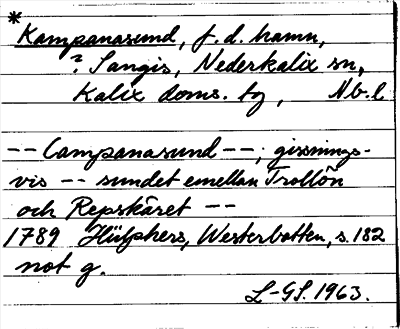 *
Kampanasund, f.d. hamn,
? Sangis, Nederkalix sn,
Kalix doms. tg, Nb. l
-- Campanasund --, gissnings-
vis -- sundet emellan Trollön
och Repskäret --
1789 Hülphers, Westerbotten, s. 182
not g.
L-GS. 1963.